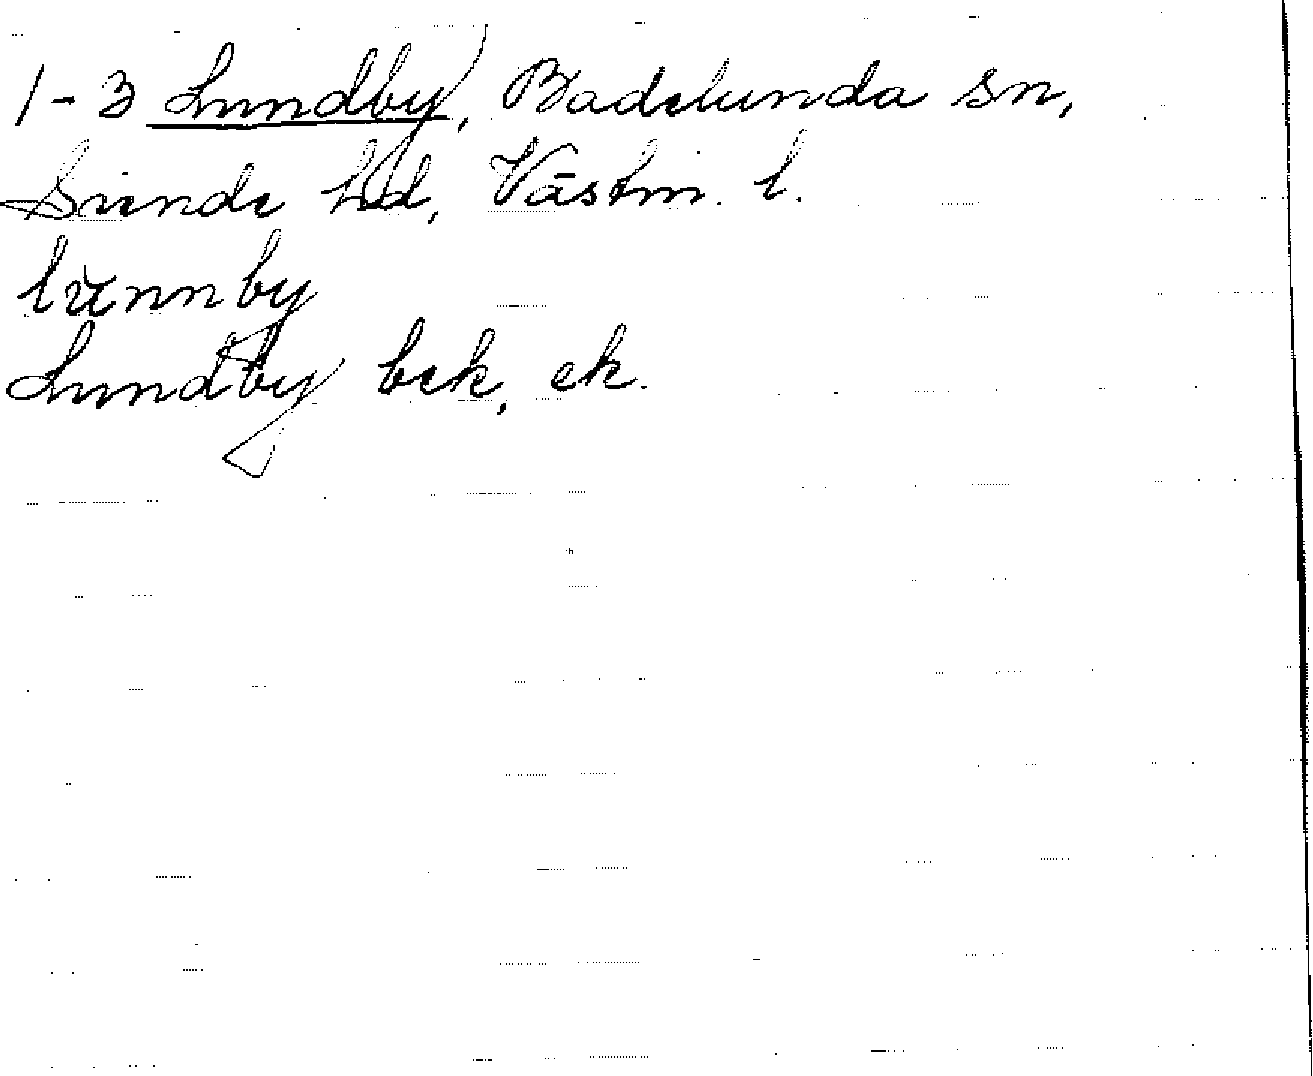 1-3 Lundby, Badelunda sn,
Siende hd, Västm. l.
lůnnby
Lundby bek, ek.